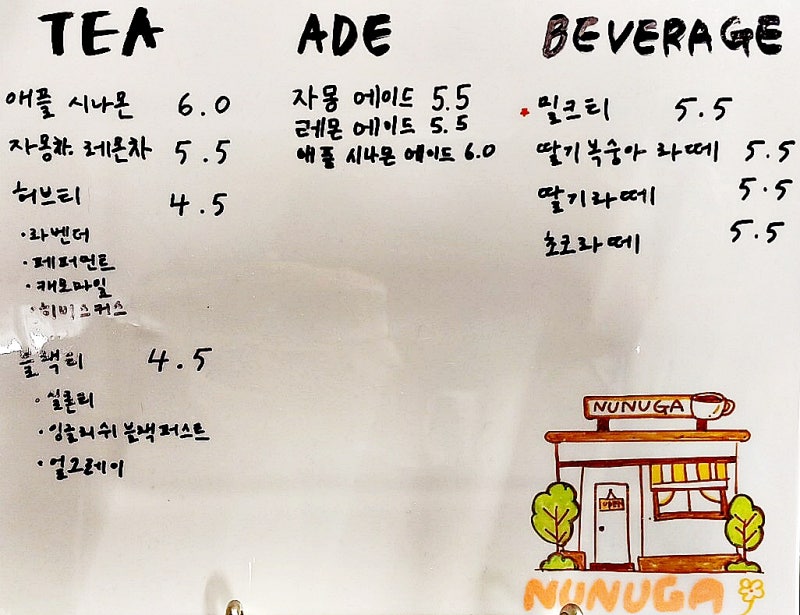 TEA
애플 시나몬 6.0
자몽차. 레몬차 5.5
허브티 4.5
·라벤더
·페퍼먼트
·캐모마일
·히비스커스
블랙티 4.5
·실론티
·잉글리쉬 블랙퍼스트
·얼그레이
ADE
자몽 에이드 5.5
레몬 에이드 5.5
애플 시나몬 에이드 6.0
BEVERAGE
밀크티 5.5
딸기복숭아 라떼 5.5
딸기라떼 5.5
초코라떼 5.5
NUNUGA
OPEN
NUNUGA